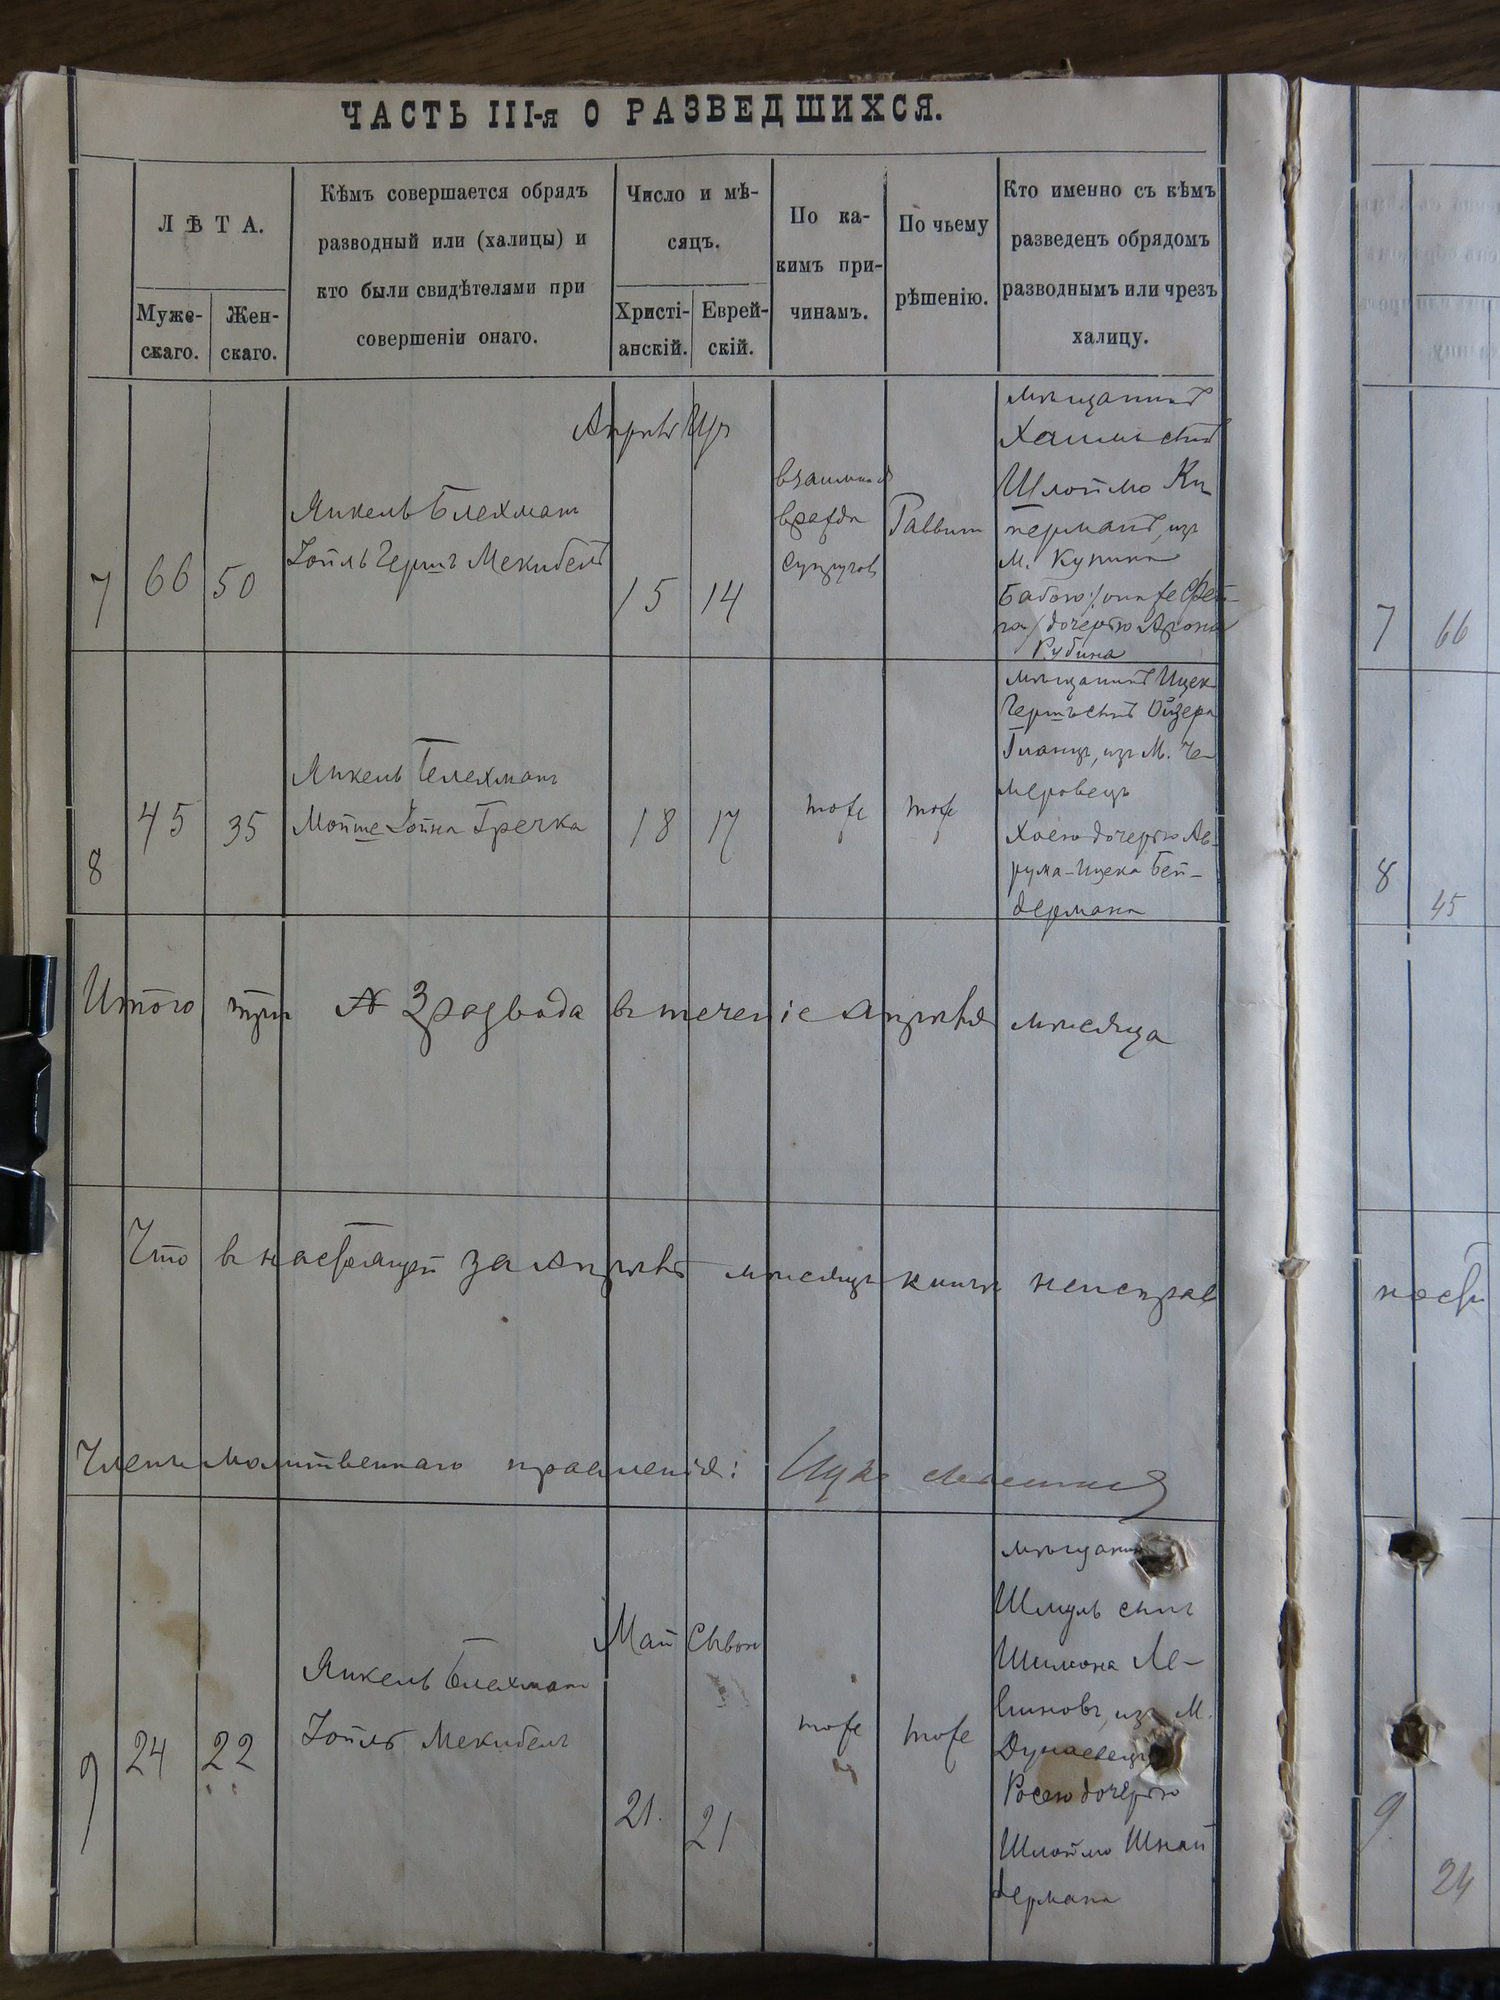 ЧАСТЬ III-я О РАЗВЕДШИХСЯ.
ЛѢТА.
Муже-
скаго.
Жен-
скаго.
Кѣмъ совершается обрядъ
разводный или (халицы) и
кто были свидѣтелями при
совершеніи онаго.
Число и мѣ-
сяцъ.
Христі-
анскій.
Еврей-
скій.
По ка-
кимъ при-
чинамъ.
По чьему
рѣшенію.
Кто именно съ кѣмъ
разведенъ обрядомъ
разводнымъ или чрезъ
халицу.
7
66
50
Янкель Блехман
Іойль Герш Мекибель
15
14
взаимная
вражда
супругов
Раввин
мѣщанинъ
Хаим сынъ
Шлоймо
перманъ, из
м. Купина
Бабою /она же Фей-
га/ дочерью Арона
Рубина
8
45
35
Янкель Блехман
Мойше Іойна Гречка
18
17
тоже
тоже
мѣщанинъ Ицек
Гершъ сынъ Ойзера
Гланц, из М. Че-
меровец
Хаею дочерью Ав-
рума-Ицека Бей-
дермана
Итого три № 3 развода в теченіе Апрѣля мѣсяца
Что в настоящей за Апрѣль мѣсяц книги неисправ
Член молитвеннаго правленія:
9
24
22
Янкель Блехман
Іойль Мекибель
Май
Сывон
21.
21
тоже
тоже
Шмуль сын
Шимона Ле-
виновъ, из М.
Дунаевец
Росею дочерью
Шлоймо Шнай
дермана
7
66
8
45
9.
24